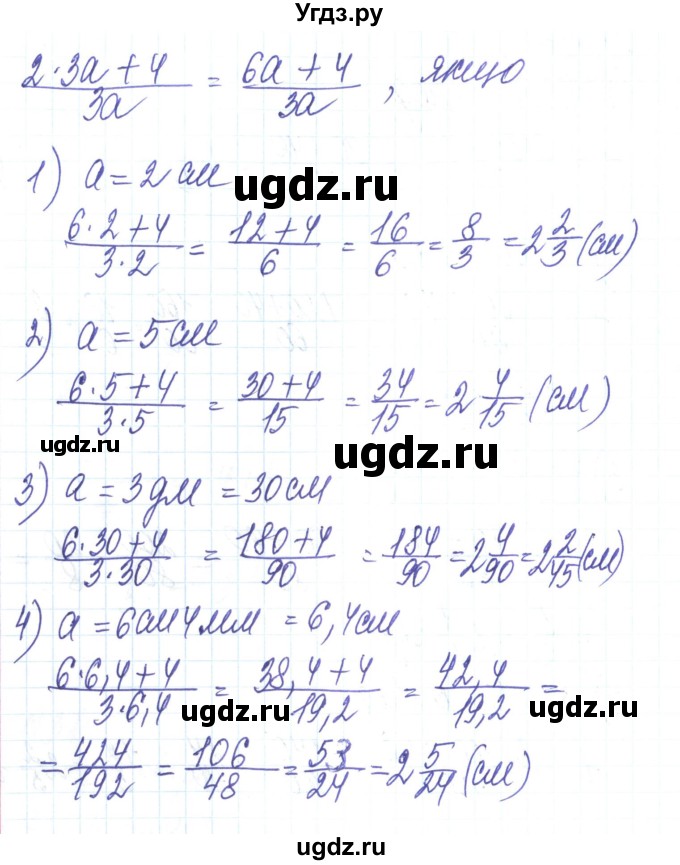 Угдз.ру
(2·3a+4)/(3a) = (6a+4)/(3a), якщо
1) a=2 см
ugdz.ru
(6·2+4)/(3·2) = (12+4)/6 = 16/6 = 8/3 = 2 2/3 (см)
2) a = 5 см
(6·5+4)/(3·5) = (30+4)/15 = 34/15 = 2 4/15 (см)
ugdz.ru
ugdz.ru
3) a = 3 дм = 30 см
(6·30+4)/(3·30) = (180+4)/90 = 184/90 = 2 4/90 = 2 2/45 (см)
4) a = 6 см 4 мм = 6,4 см
(6·6,4+4)/(3·6,4) = (38,4+4)/19,2 = 42,4/19,2 =
ugdz.ru
ugdz.ru
= 424/192 = 106/48 = 53/24 = 2 5/24 (см)
ugdz.ru